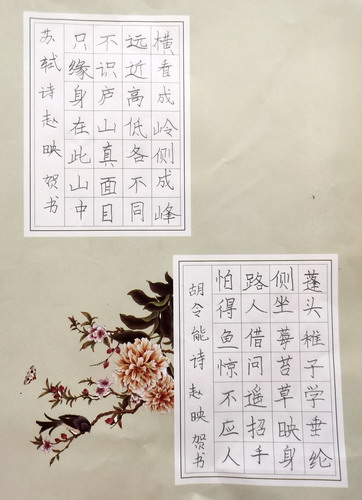 横看成岭侧成峰
远近高低各不同
不识庐山真面目
只缘身在此山中
苏轼诗赵映贺书
蓬头稚子学垂纶
侧坐莓苔草映身
路人借问遥招手
怕得鱼惊不应人
胡令能诗赵映贺书